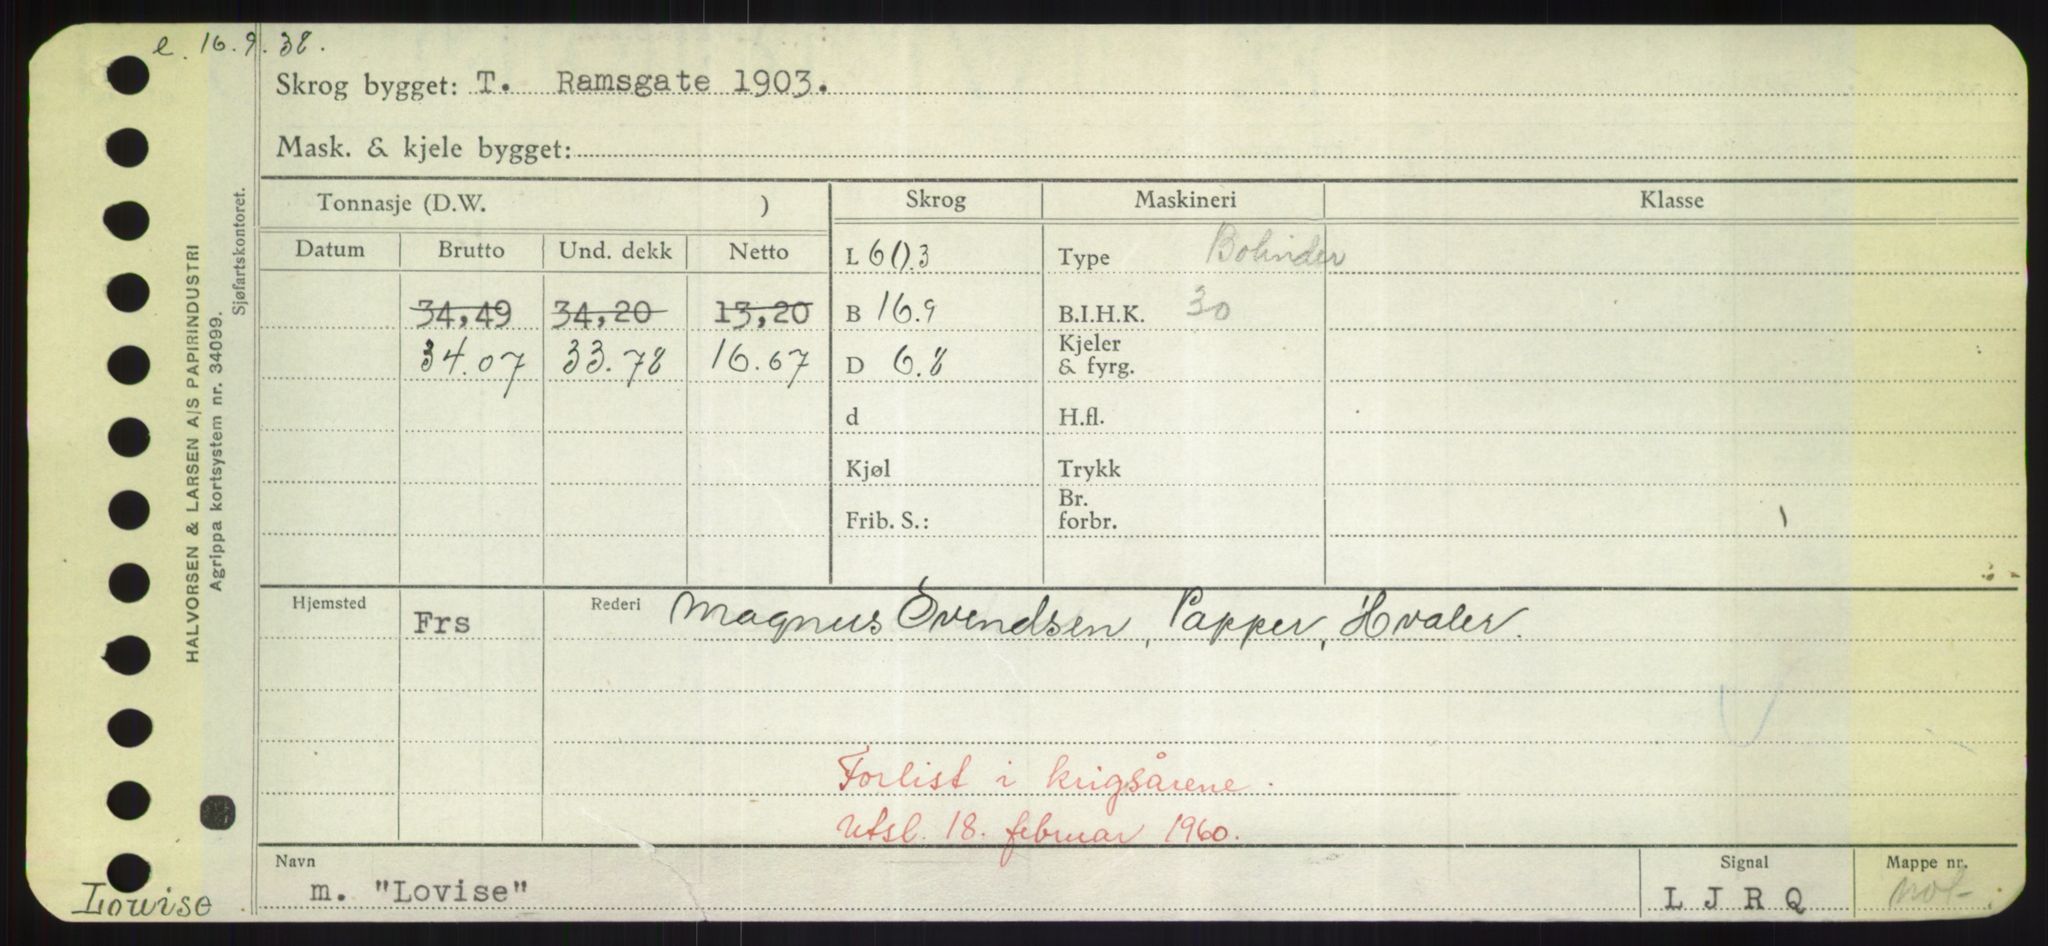 e. 16.9.38.
Skrog bygget: T. Ramsgate 1903.
Mask. & kjele bygget:
HALVORSEN & LARSEN A/S PAPIRINDUSTRI
Agrippa kortsystem nr. 34099.
Sjøfartskontoret.
Tonnasje (D.W. ) Skrog Maskineri Klasse
Datum Brutto Und. dekk Netto L 60.3 Type Bolinder
34,49 34,20 13,20 B 16.9 B.I.H.K. 30
34.07 33.78 16.67 D 6.8 Kjeler & fyrg.
d H.fl.
Kjøl Trykk
Frib. S.: Br. forbr.
Hjemsted Frs Rederi Magnus Evendsen, Papper, Hvaler.
Forlist i krigsårene.
Utsl. 18. februar 1960.
Navn Signal Mappe nr.
m. "Lovise" L J R Q not
Lowise